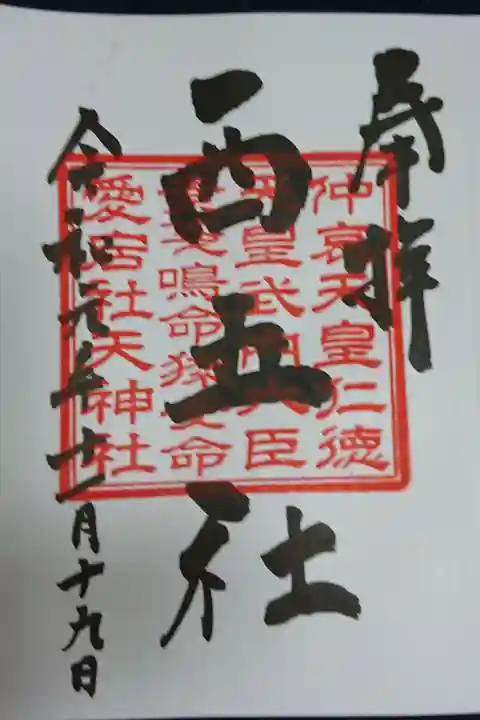 奉拝
西五社
令和元年十一月十九日
仲哀天皇仁徳
天皇武内大臣
鳴命猿命
愛宕社天神社